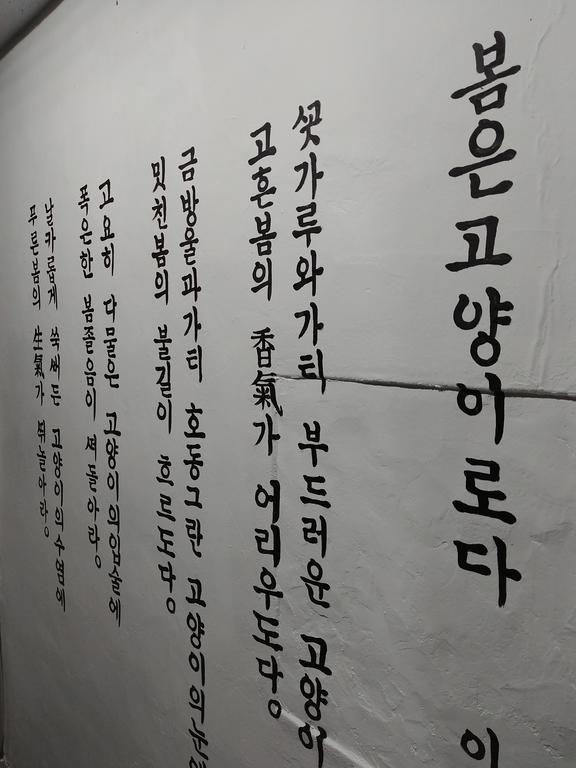 봄은고양이로다
이
ᄭᅩᆺ가루와가티 부드러운 고양이
고흔봄의 香氣가 어리우도다。
금방울과가티 호동그란 고양이의눈에
밋친봄의 불길이 흐르도다。
고요히 다물은 고양이의입술에
폭은한 봄졸음이 ᄯᅥ돌아라。
날카롭게 ᄶᅮᆨᄲᅥ든 고양이의수염에
푸른봄의 生氣가 ᄯᅱ놀아라。